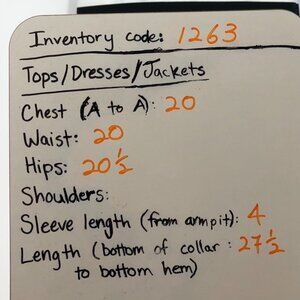 Inventory code: 1263
Tops/Dresses/Jackets
Chest (A to A): 20
Waist: 20
Hips: 20 1/2
Shoulders:
Sleeve length (from armpit): 4
Length (bottom of collar : 27 1/2
to bottom hem)